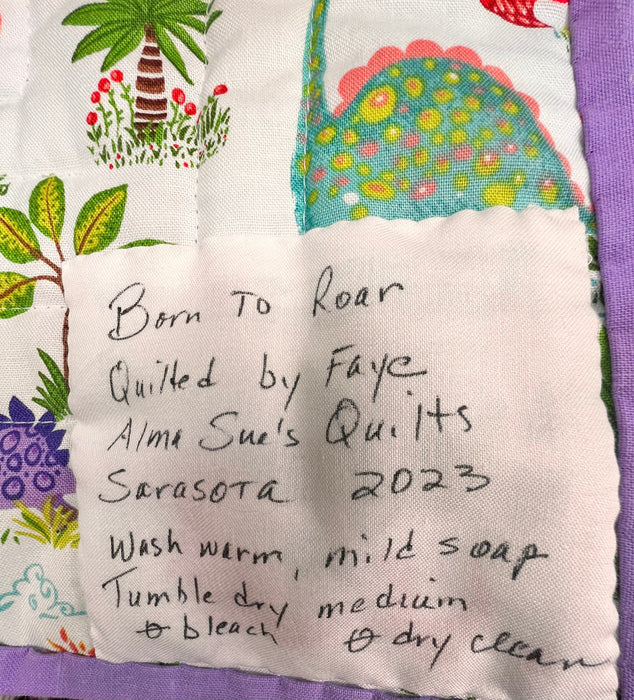 Born To Roar
Quilted by Faye
Alma Sue's Quilts
Sarasota 2023
Wash warm, mild soap
Tumble dry medium
ꝋ bleach ꝋ dry clean